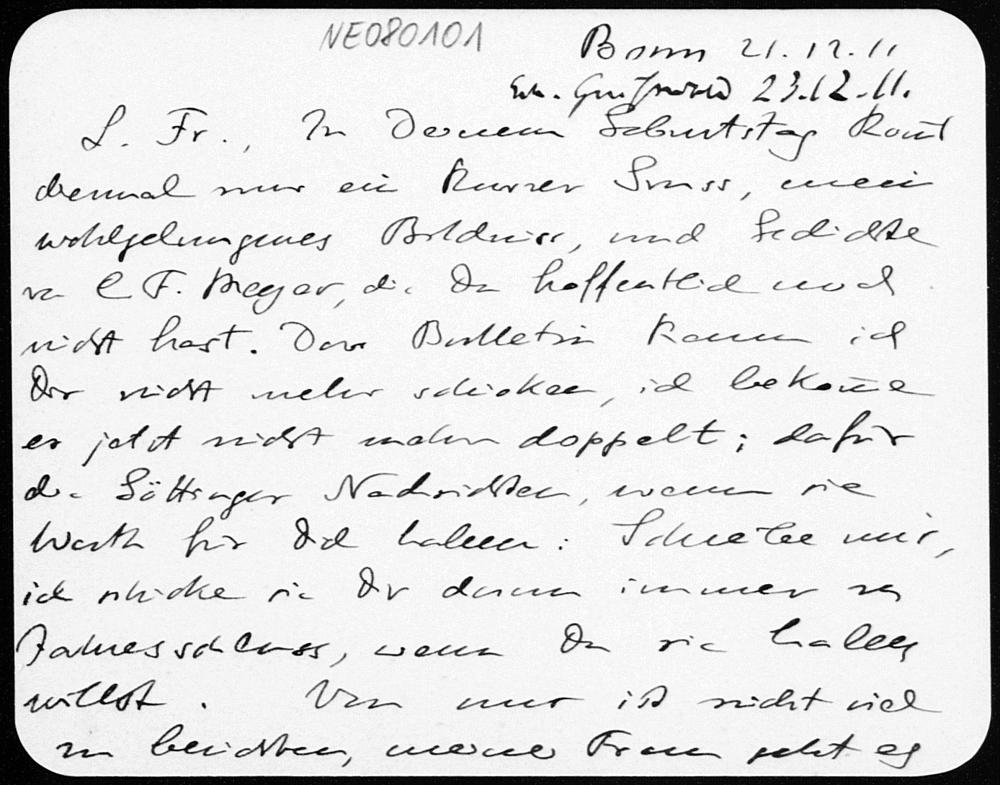 NE080101
Bonn 21.12.11
Erh. Greifswald 23.12.11.
L. Fr., Zu Deinem Geburtstag komt
diesmal nur ein kurzer Gruss, mein
wohlgelungenes Bildniss, und Gedichte
von C F. Meyer, die Du hoffentlich noch
nicht hast. Das Bulletin kann ich
Dir nicht mehr schicken, ich bekome
es jetzt nicht mehr doppelt; dafür
die Göttinger Nachrichten, wenn sie
Werth für Dich haben: Schreibe mir,
ich schicke sie Dir dann immer zu
Jahresschluss, wenn Du sie haben
willst. Von mir ist nicht viel
zu berichten, meiner Frau geht es